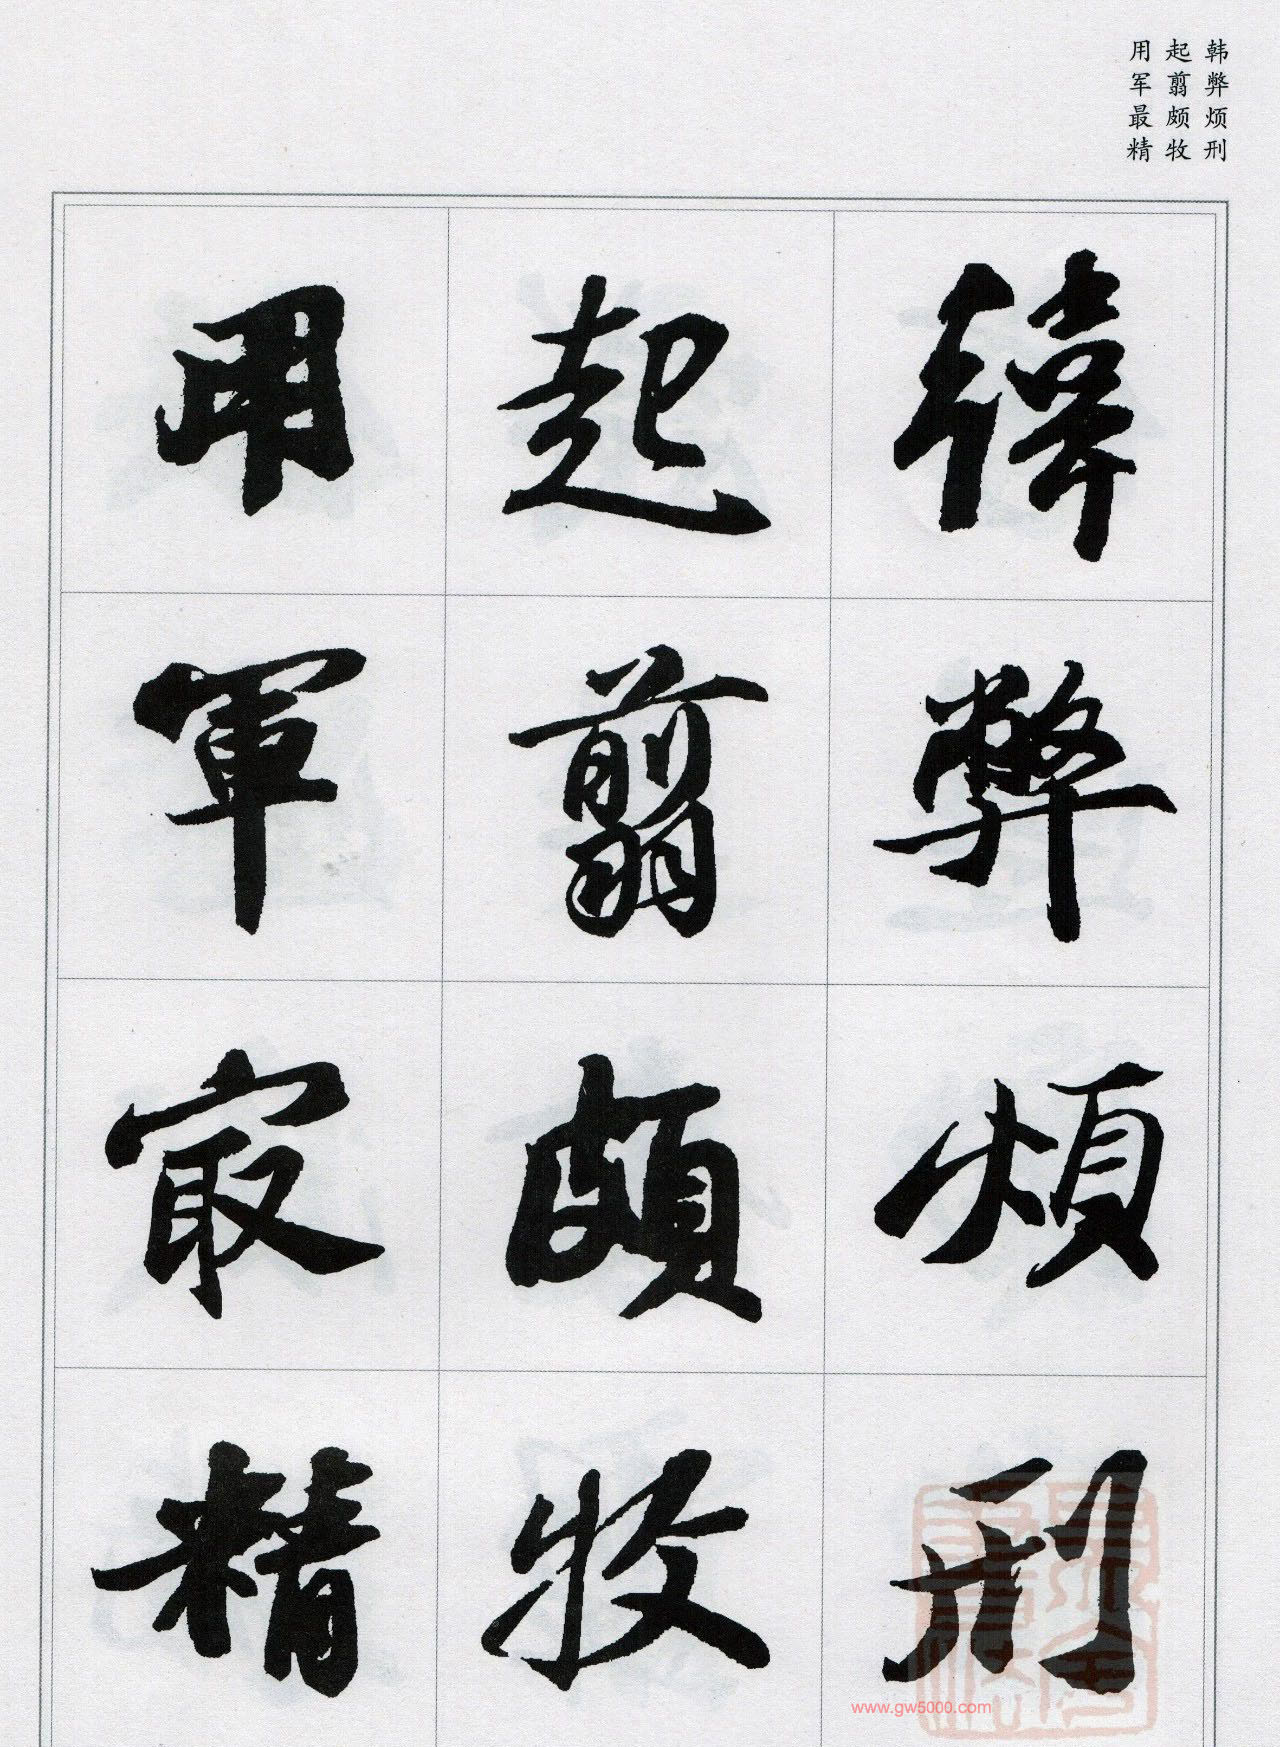 韩弊烦刑
起翦颇牧
用军最精
韓弊煩刑
起翦頗牧
用軍㝡精
www.gw5000.com